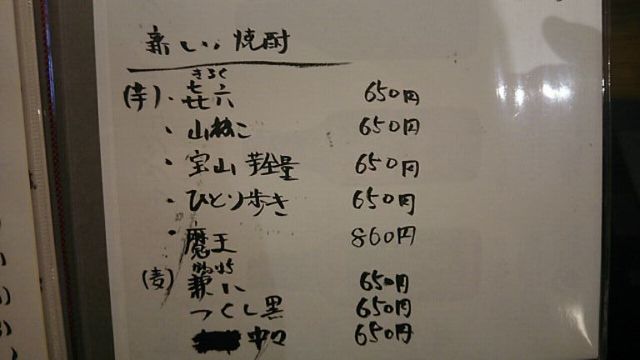 新しい焼酎
(芋)・㐂六 きろく 650円
・山ねこ 650円
・宝山 芋全量 650円
・ひとり歩き 650円
・魔王 860円
(麦) 兼八 650円
つくし黒 650円
中々 650円